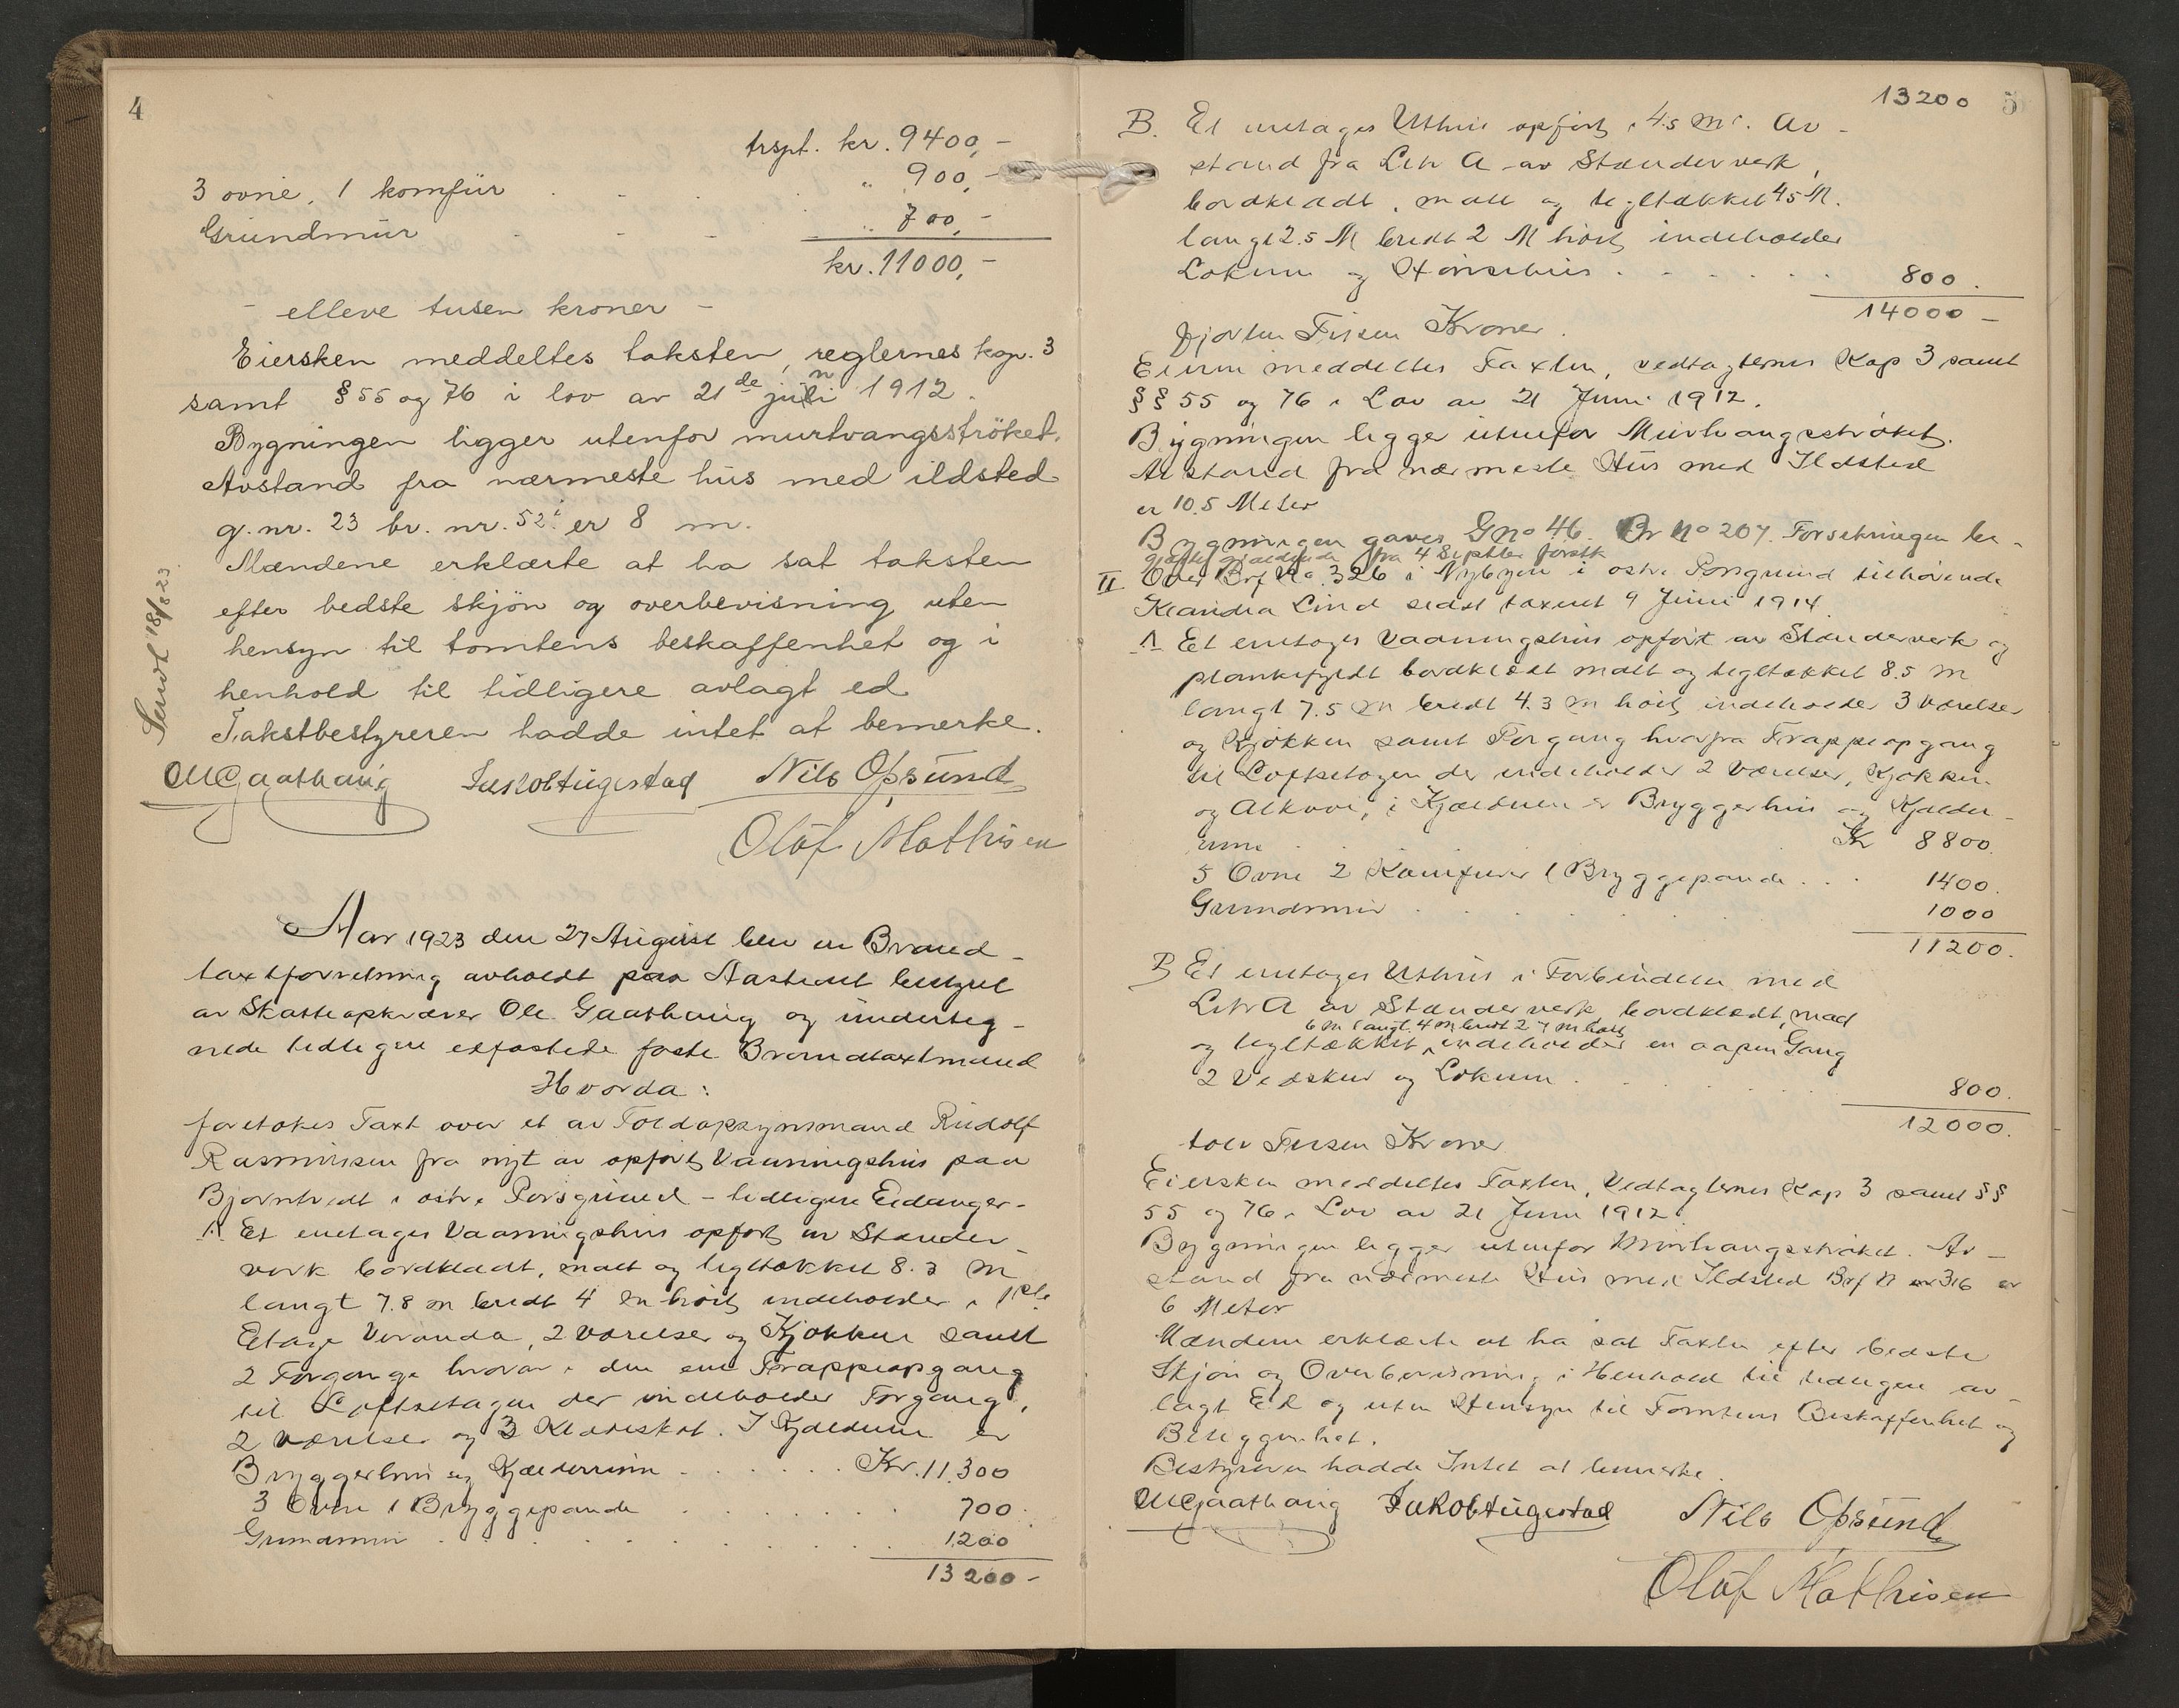 4
trspt. kr. 9400,-
3 ovne, 1 komfür . . . " 900,-
Grundmür - - - " 700,-
kr. 11000,-
- elleve tusen kroner -
Eiersken meddeltes taksten, reglernes kap. 3
samt § 55 og 76 i lov av 21de juni 1912.
Bygningen ligger utenfor murtvangsströket.
Avstand fra nærmeste hus med ildsted
g. nr. 23 br. nr. 52 er 8 m.
Mændene erklærte at ha sat taksten
efter bedste skjön og overbevisning uten
hensyn til tomtens beskaffenhet og i
henhold til tidligere avlagt ed.
Takstbestyreren hadde intet at bemerke.
Sendt 18/8 23
Gaathaug Jakob Tugestad Nils Opsund
Olaf Mathisen
Aar 1923 den 27 August blev en Brand-
taxtforretning avholdt paa Aastedet bestyret
av Skatteopkræver Ole Gaathaug og underteg-
nede tidligere edfæstede faste Brandtaxtmænd
Hvorda:
foretokes Taxt over et av Toldopsynsmand Rudolf
Rasmussen fra nyt av opført Vaaningshus paa
Bjørntvedt i østre Porsgrund - tidligere Eidanger -
A Et enetages Vaaningshus opført av Stænder-
verk bordklædt, malt og tegltækket 8.3 M
langt 7.8 m bredt 4 m høit, indeholder i 1ste
Etage Veranda, 2 Værelser og Kjøkken samt
2 Forgange hvorav i den ene Trappeopgang
til Loftsetagen der indeholder Forgang,
2 Værelser og 3 Klæsskot. I Kjælderen er
Bryggerhus og Kjælderrum . . . . . Kr. 11.300
3 Ovne 1 Bryggepande . . . . . 700.
Grundmur . . . . . 1200
13200 -
13200 5
B. Et enetages Uthus opført i 4.5 m's Av-
stand fra Litr A av Stænderverk,
bordklædt, malt og tegltækket 4.5 M.
langt 2.5 M bredt 2 M høit, indeholder
Lokum og Hønsehus . . . . . 800.
14000 -
fjorten Tusen Kroner.
Eieren meddeltes Taxten, vedtagternes Kap 3 samt
§§ 55 og 76 i Lov av 21 Juni 1912.
Bygningen ligger utenfor Murtvangsstrøket.
Avstand fra nærmeste Hus med Ildsted
er 10.5 Meter
Bygningen gaves Gno 46. Br No 207. Forsikringen be-
gjæres gjældende fra 4 Septbr førstk
II Over Brf No 326 i Nybyen i østre Porsgrund tilhørende
Klandia Lind sidst taxeret 9 Juni 1914
A Et enetages Vaaningshus opført av Stænderverk og
plankefyldt bordklædt malt og tegltækket 8.5 m
langt 7.5 m bredt 4.3 m høit, indeholder 3 Værelser
og Kjøkken samt Forgang hvorfra Trappeopgang
til Loftsetagen der indeholder 2 Værelser, Kjøkken
og Alkove, i Kjælderen er Bryggerhus og Kjælder-
rum . . . Kr 8800.
5 Ovne 2 Komfurer 1 Bryggepande . . . 1400.
Grundmur . . . . . 1000
11200.
B Et enetages Uthus i Forbindelse med
Litr A av Stænderverk bordklædt, malt
6 m langt. 4 m bredt 2.7 m høit
og tegltækket, indeholder en aapen Gang
2 Vedskur og Lokum . . . . . 800.
12000.
tolv Tusen Kroner
Eiersken meddeltes Taxten, Vedtagternes Kap 3 samt §§
55 og 76 i Lov av 21 Juni 1912.
Bygningen ligger utenfor Murtvangsstrøket. Av-
stand fra nærmeste Hus med Ildsted Brf N 316 er
6 Meter
Mændene erklærte at ha sat Taxten efter bedste
Skjøn og Overbevisning i Henhold til tidligere av-
lagt Ed og uten Hensyn til Tomtens Beskaffenhet og
Beliggenhet.
Bestyreren hadde Intet at bemerke.
Gaathaug Jakob Tugestad Nils Opsund
Olaf Mathisen